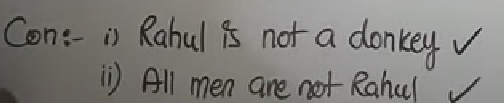 Con:- i) Rahul is not a donkey ✓
ii) All men are not Rahul ✓